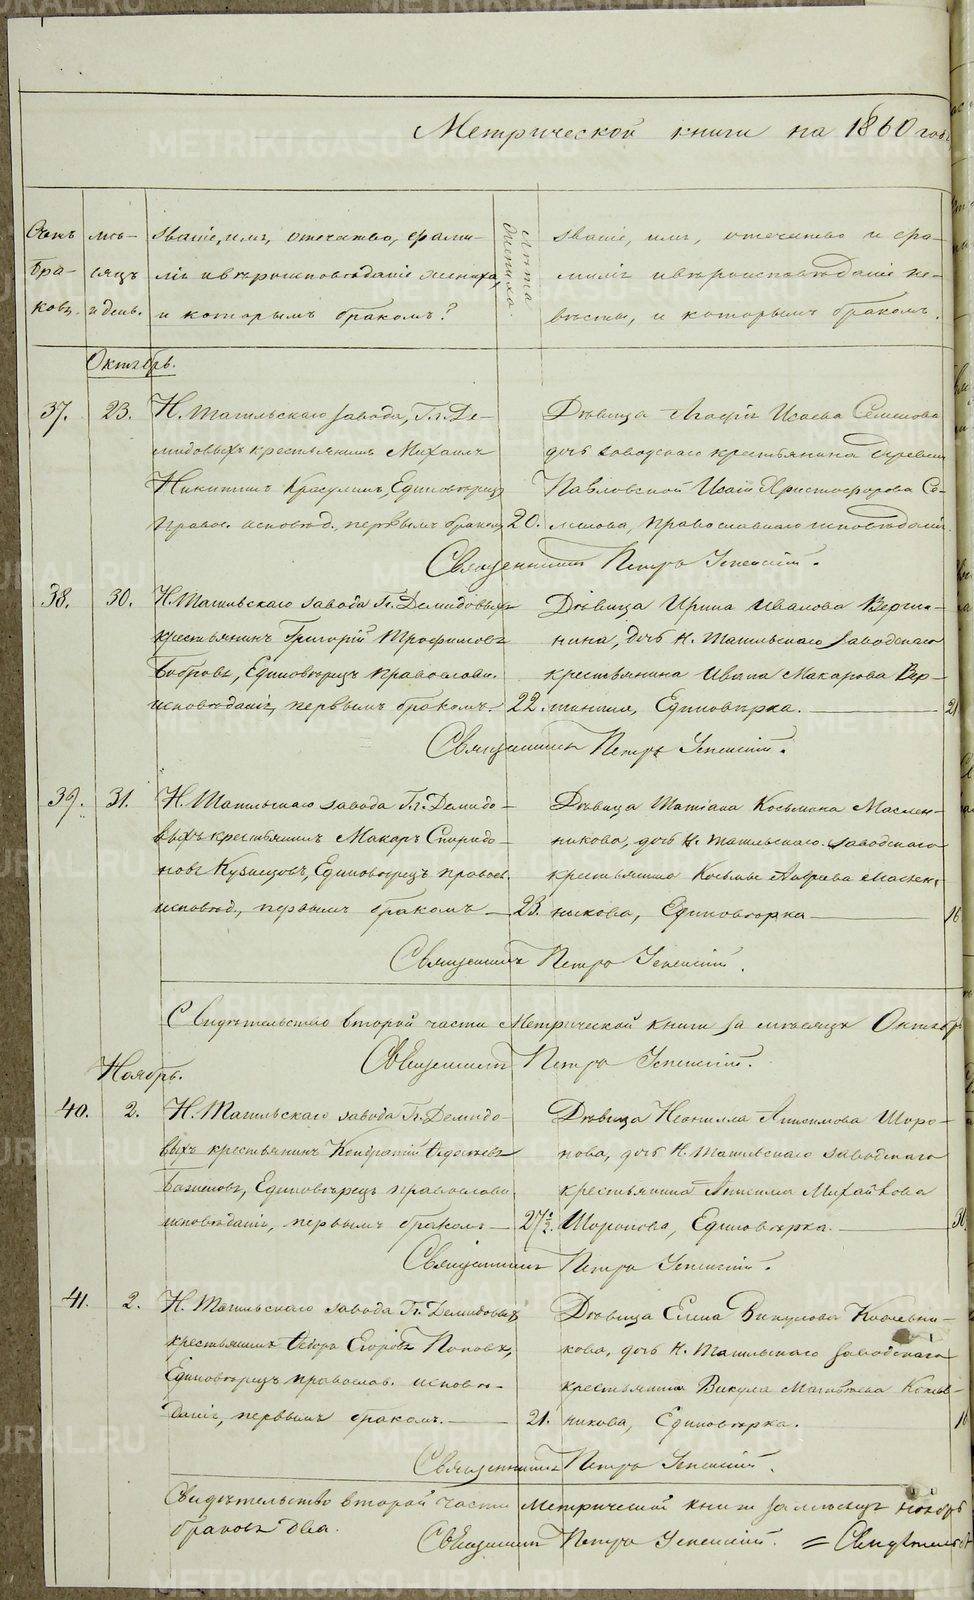 Метрической книги на 1860 годъ
Счетъ браковъ.
мѣсяцъ и день.
званіе, имя, отчество, фамилія и вѣроисповѣданіе жениха, и которымъ бракомъ?
лѣта жениха.
званіе, имя, отечество и фамилія и вѣроисповѣданіе невѣсты, и которымъ бракомъ.
Октябрь.
37. 23. Н. Тагильскаго завода, Гг. Де-
мидовыхъ крестьянинъ Михаилъ
Никитинъ Красулинъ, Единовѣрецъ
правос. исповѣд. первымъ бракомъ 20.
Дѣвица Агафія Исаева Селиткова
дочь заводскаго крестьянина деревни
Павловской Исаіи Христофорова Се-
православнаго исповѣданія.
Священникъ Петръ Успенскій.
38. 30. Н. Тагильскаго завода Гг. Демидовыхъ
крестьянинъ Григорій Трофимовъ
Бобровъ, Единовѣрецъ православн.
исповѣданія, первымъ бракомъ. 22.
Дѣвица Ирина Иванова Верши-
нина, дочь Н. Тагильскаго заводскаго
крестьянина Ивана Макарова Вер-
шинина, Единовѣрка. 21
Священникъ Петръ Успенскій.
39. 31. Н. Тагильскаго завода Гг. Демидо-
выхъ крестьянинъ Макаръ Спиридо-
новъ Кузнецовъ, Единовѣрецъ правосл.
исповѣд., первымъ бракомъ 23.
Дѣвица Татіана Козьмина Маслен-
никова, дочь Н. Тагильскаго заводскаго
крестьянина Козьмы Маслен-
никова, Единовѣрка 16
Священникъ Петръ Успенскій.
Свидѣтельство второй части Метрической книги за мѣсяцъ Октябрь
Священникъ Петръ Успенскій.
Ноябрь.
40. 2. Н. Тагильскаго завода Гг. Демидо-
выхъ крестьянинъ Кондратій
Единовѣрецъ православн.
исповѣданія, первымъ бракомъ 27½.
Дѣвица Неонилла Анисимова Шоро-
нова, дочь Н. Тагильскаго заводскаго
крестьянина Анисима Михайлова
Шоронова, Единовѣрка. 30
Священникъ Петръ Успенскій.
41. 2. Н. Тагильскаго завода Гг. Демидовыхъ
крестьянинъ Ѳедоръ Егоровъ Поповъ,
Единовѣрецъ православ. исповѣ-
данія, первымъ бракомъ. 21.
Дѣвица Елена Викулова
дочь Н. Тагильскаго заводскаго
крестьянина Викула Матвѣева
никова, Единовѣрка. 16
Священникъ Петръ Успенскій.
Свидѣтельство второй части Метрической книги за мѣсяцъ ноябрь
браковъ два.
Священникъ Петръ Успенскій.
METRIKI.GASO-URAL.RU